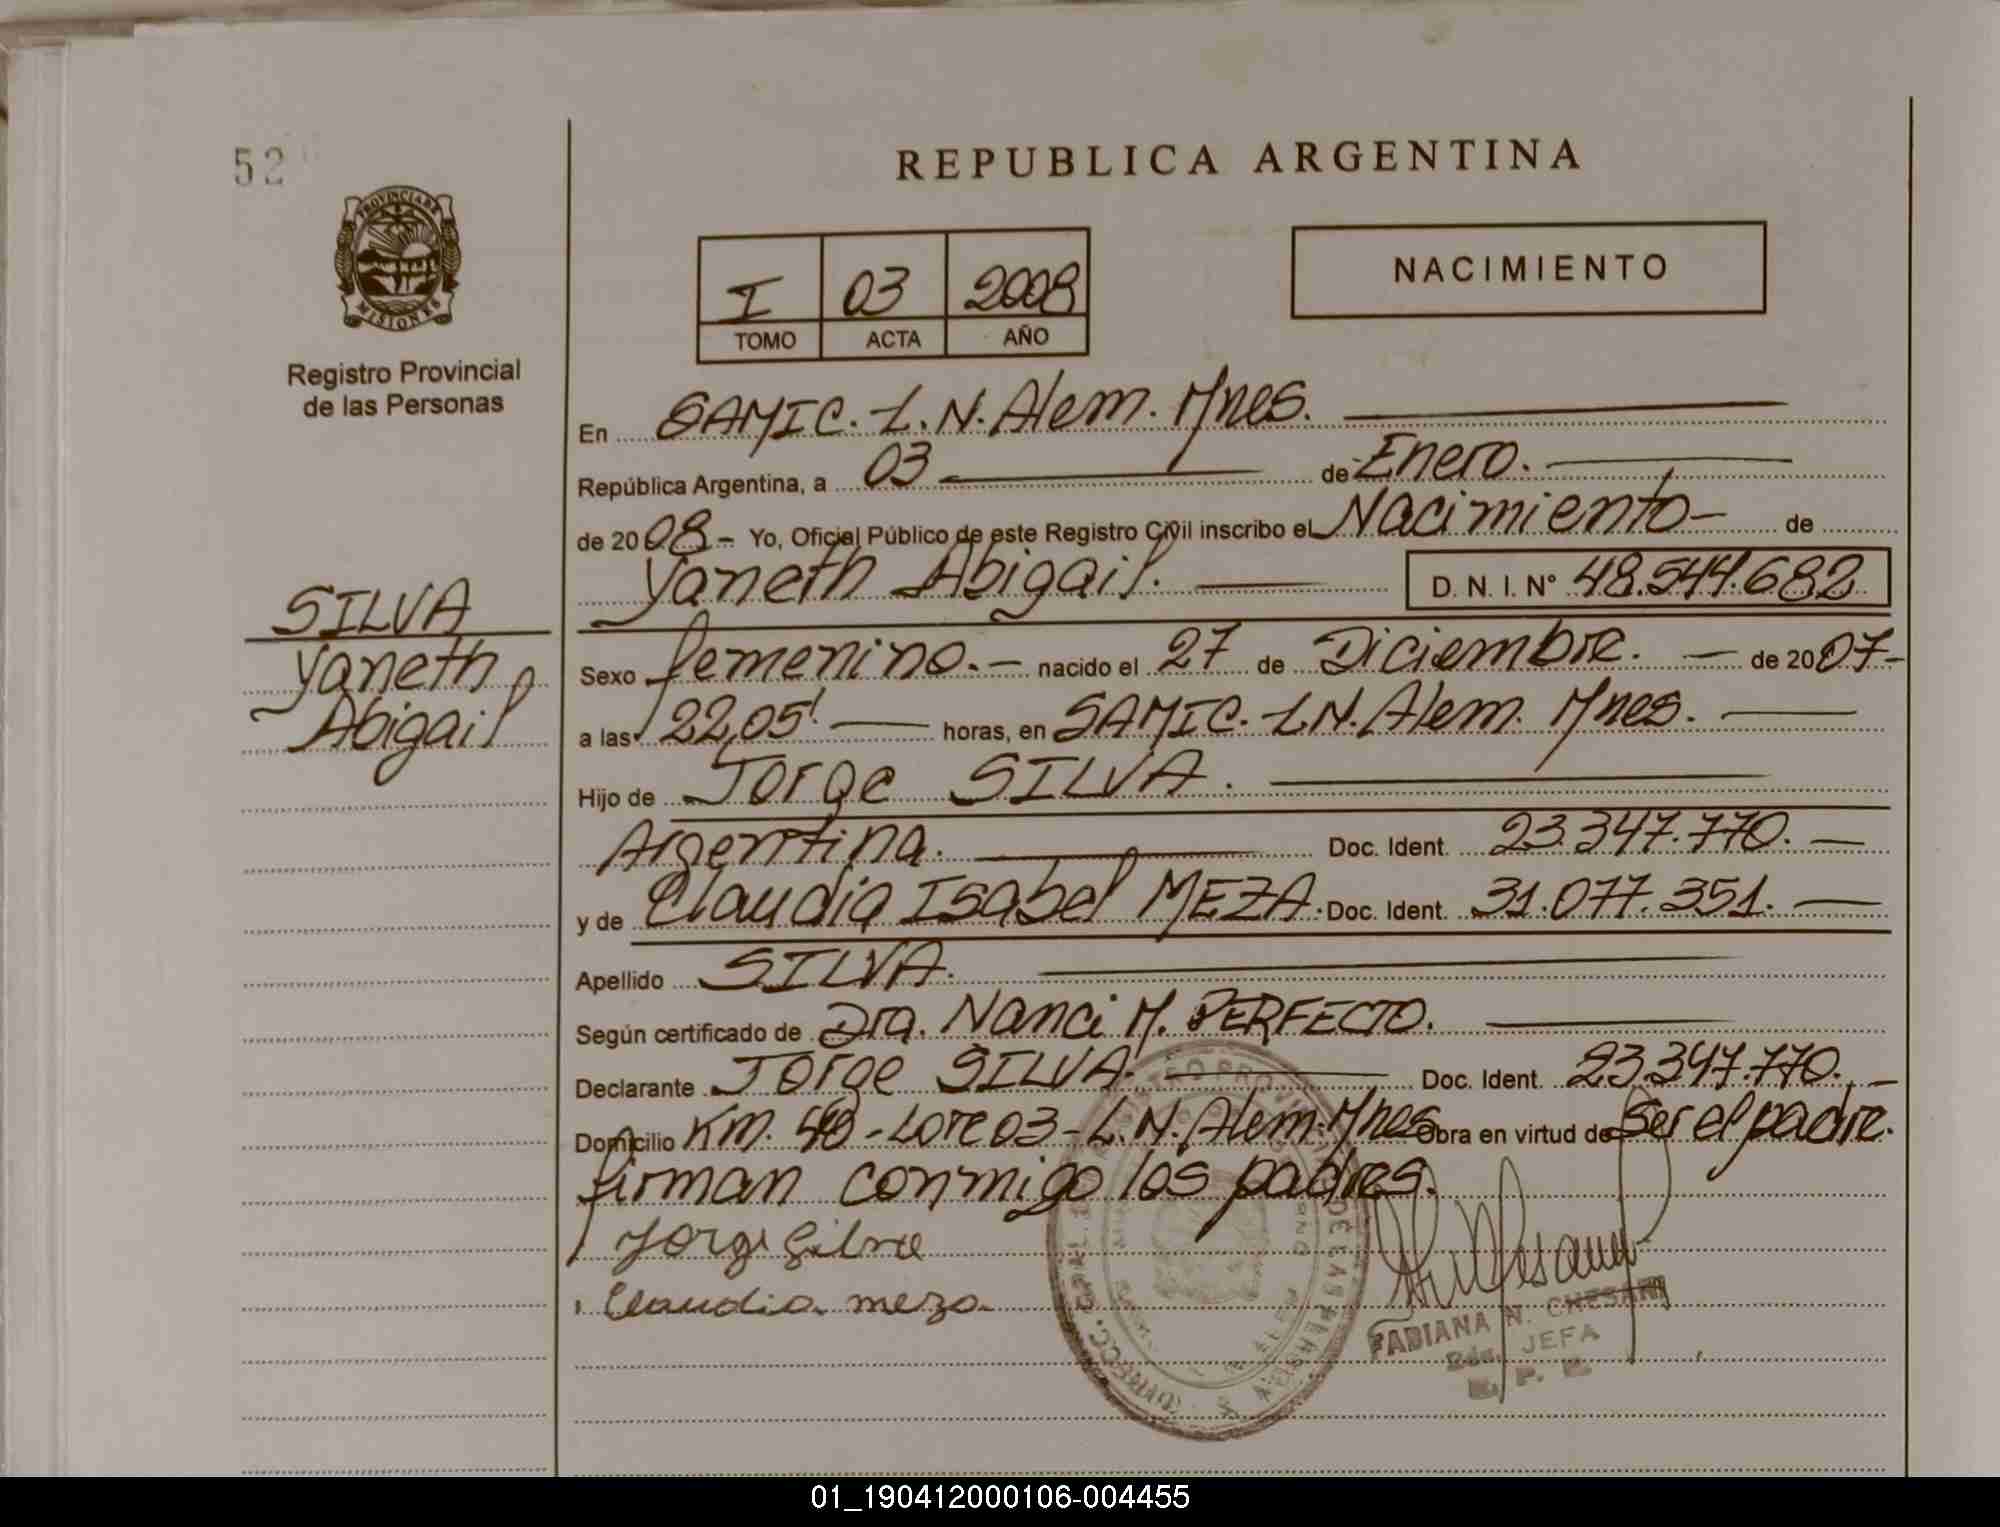 52
REPUBLICA ARGENTINA
PROVINCIA DE
MISIONES
Registro Provincial
de las Personas
I 03 2008
TOMO ACTA AÑO
NACIMIENTO
En SAMIC. L.N. Alem. Mnes.
República Argentina, a 03 de Enero.
de 2008 - Yo, Oficial Público de este Registro Civil inscribo el Nacimiento - de
Yaneth Abigail. D. N. I. Nº 48.544.682
SILVA
Yaneth
Abigail
Sexo femenino. - nacido el 27 de Diciembre. - de 2007-
a las 22,05' horas, en SAMIC. L.N. Alem. Mnes.
Hijo de Jorge SILVA.
Argentina. Doc. Ident. 23.347.770.
y de Claudia Isabel MEZA. Doc. Ident. 31.077.351.
Apellido SILVA.
Según certificado de Dra. Nanci M. PERFECTO.
Declarante Jorge SILVA. Doc. Ident. 23.347.770.
Domicilio Km. 48 - Lote 03 - L.N. Alem. Mnes Obra en virtud de Ser el padre.
firman conmigo los padres.
Jorge Silva
Claudia meza
FABIANA N. CHESANI
JEFA
01_190412000106-004455